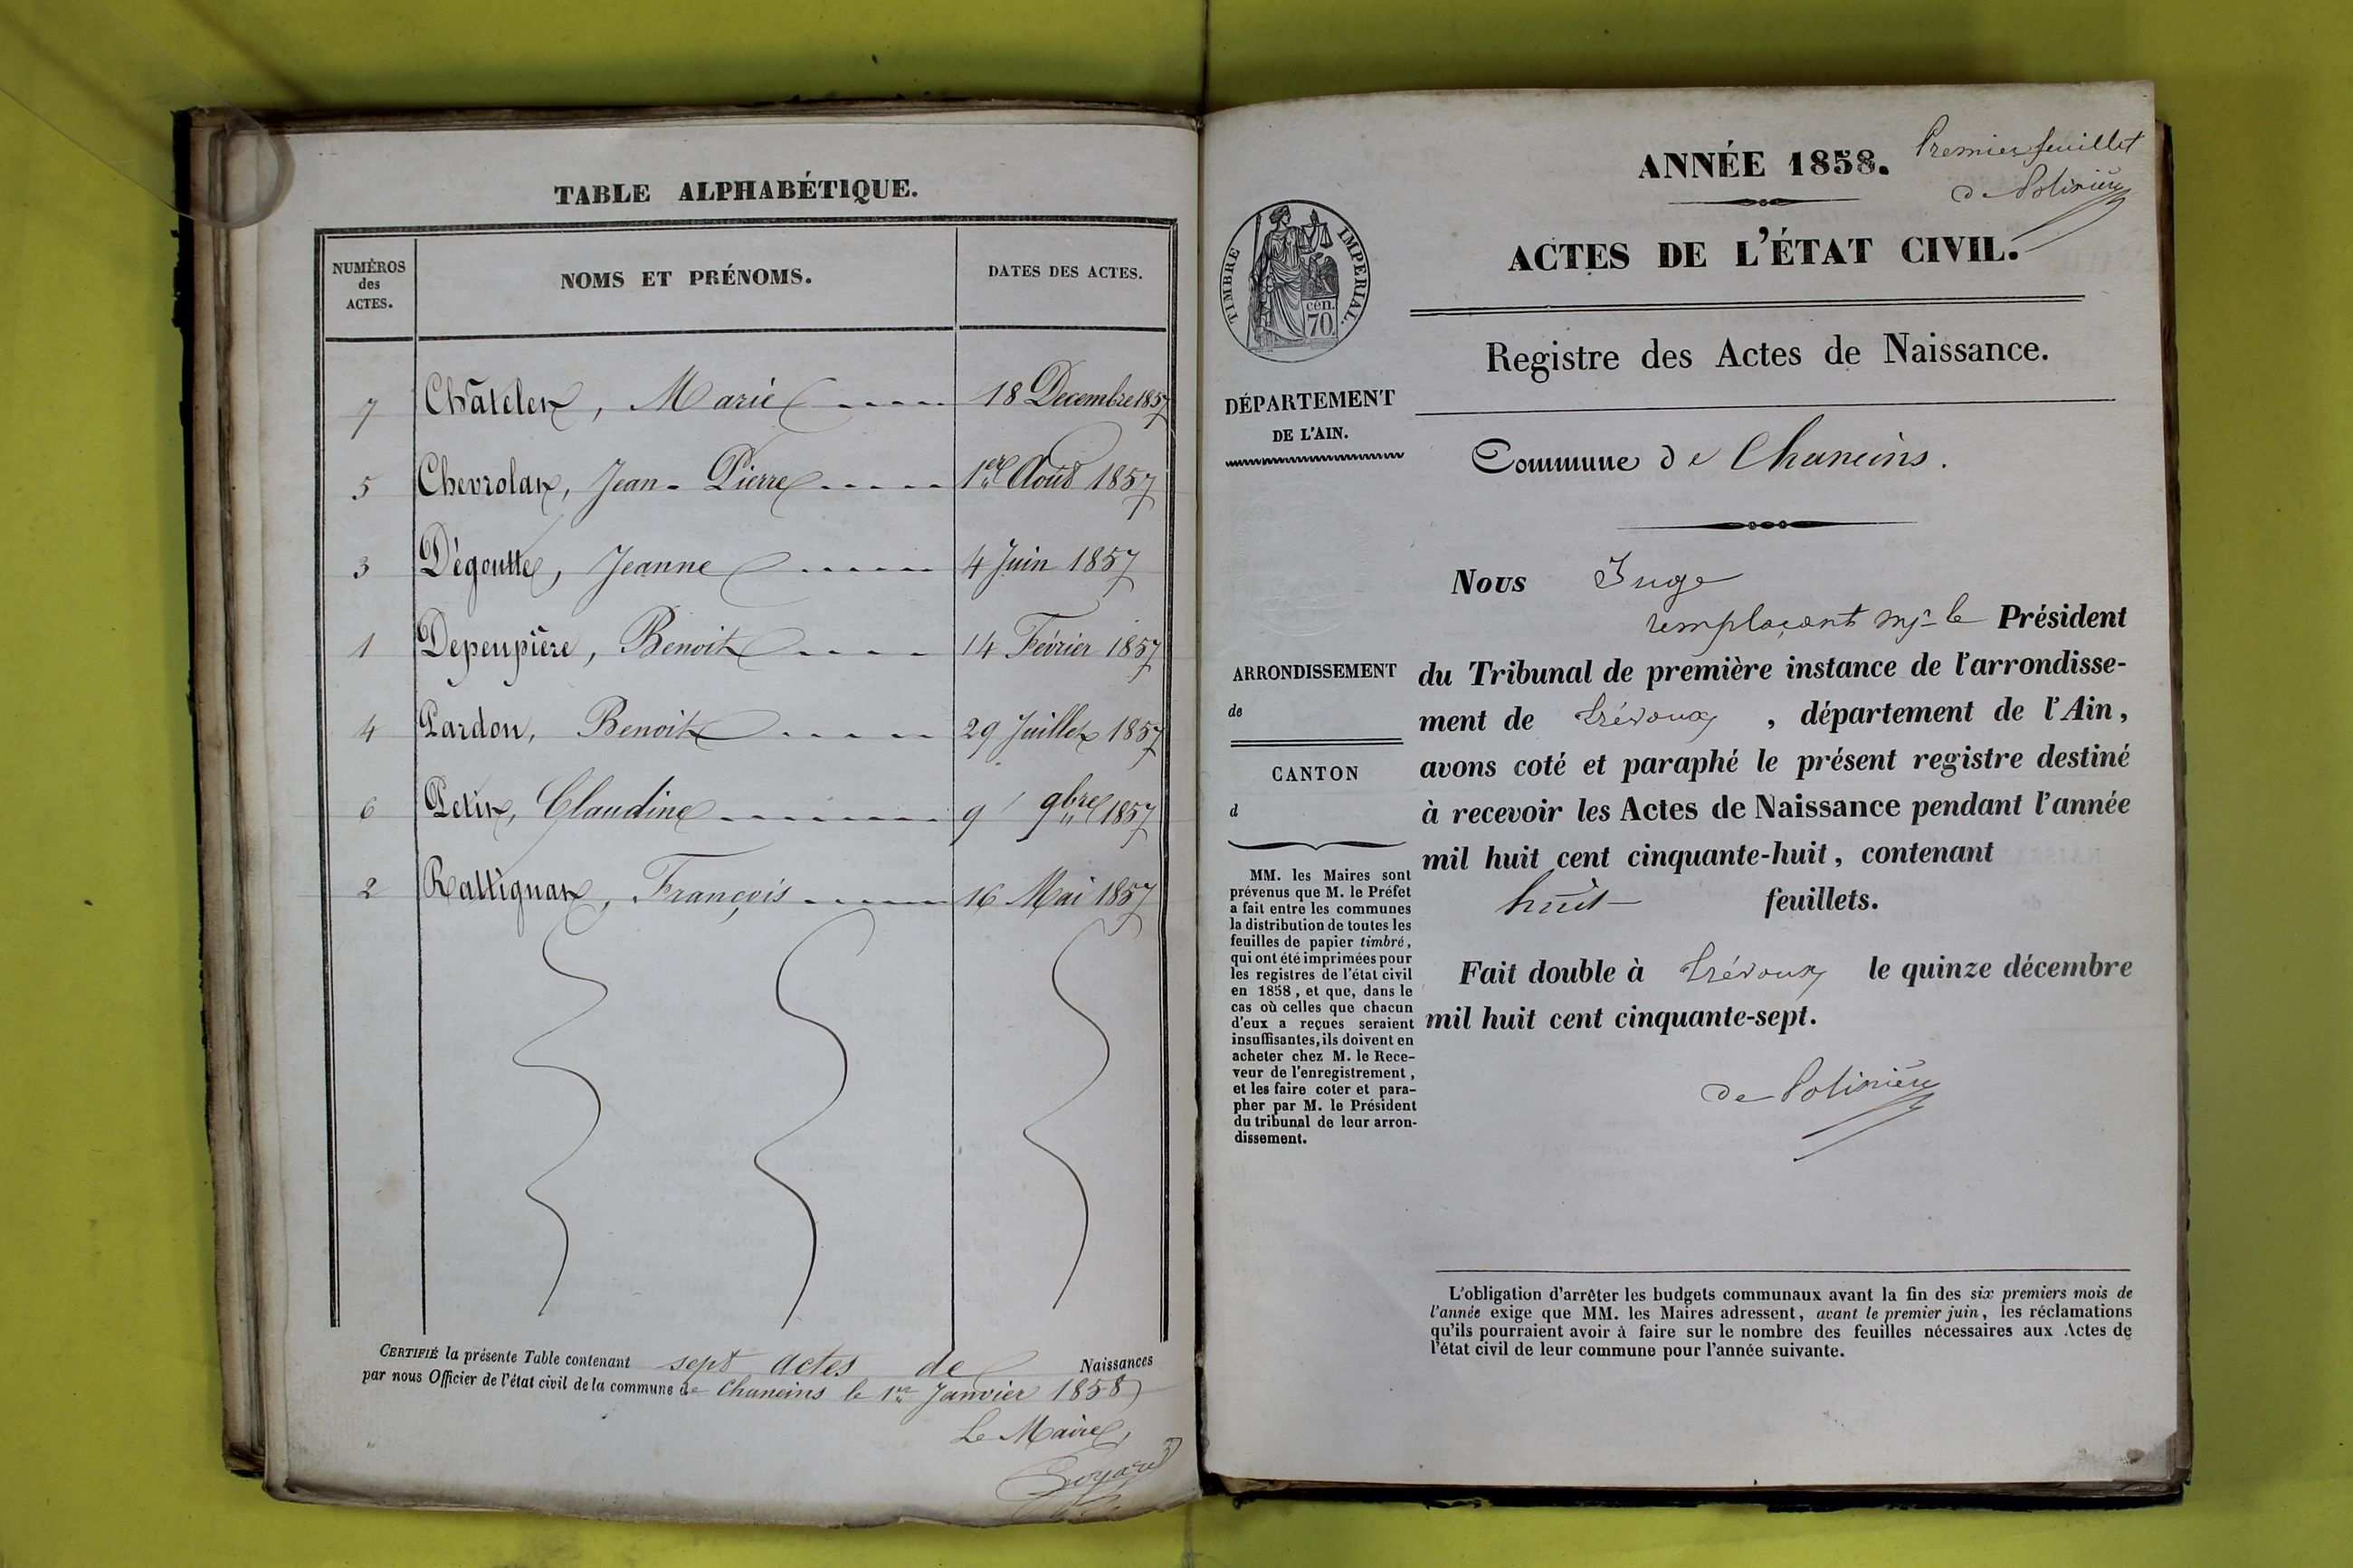 TABLE ALPHABÉTIQUE.
NUMÉROS
des
ACTES.
NOMS ET PRÉNOMS.
DATES DES ACTES.
7 Châtelet, Marie 18 Decembre 1857
5 Chevrolat, Jean-Pierre 1er Août 1857
3 Dégoutte, Jeanne 4 Juin 1857
1 Depeupière, Benoit 14 Février 1857
4 Pardon, Benoit 29 Juillet 1857
6 Petit, Claudine 9 9bre 1857
2 Rattignat, François 16 Mai 1857
CERTIFIÉ la présente Table contenant sept actes de Naissances
par nous Officier de l'état civil de la commune de Chaneins le 1er Janvier 1858
Le Maire,
Premier feuillet
ANNÉE 1858.
ACTES DE L'ÉTAT CIVIL.
TIMBRE IMPERIAL.
cen.
70.
Registre des Actes de Naissance.
DÉPARTEMENT
DE L'AIN.
Commune de Chaneins.
Nous Juge
remplaçant mr le Président
ARRONDISSEMENT
de
du Tribunal de première instance de l'arrondisse-
ment de Trévoux, département de l'Ain,
CANTON
d
avons coté et paraphé le présent registre destiné
à recevoir les Actes de Naissance pendant l'année
mil huit cent cinquante-huit, contenant
huit feuillets.
MM. les Maires sont
prévenus que M. le Préfet
a fait entre les communes
la distribution de toutes les
feuilles de papier timbré,
qui ont été imprimées pour
les registres de l'état civil
en 1858, et que, dans le
cas où celles que chacun
d'eux a reçues seraient
insuffisantes, ils doivent en
acheter chez M. le Rece-
veur de l'enregistrement,
et les faire coter et para-
pher par M. le Président
du tribunal de leur arron-
dissement.
Fait double à Trévoux le quinze décembre
mil huit cent cinquante-sept.
L'obligation d'arrêter les budgets communaux avant la fin des six premiers mois de
l'année exige que MM. les Maires adressent, avant le premier juin, les réclamations
qu'ils pourraient avoir à faire sur le nombre des feuilles nécessaires aux Actes de
l'état civil de leur commune pour l'année suivante.